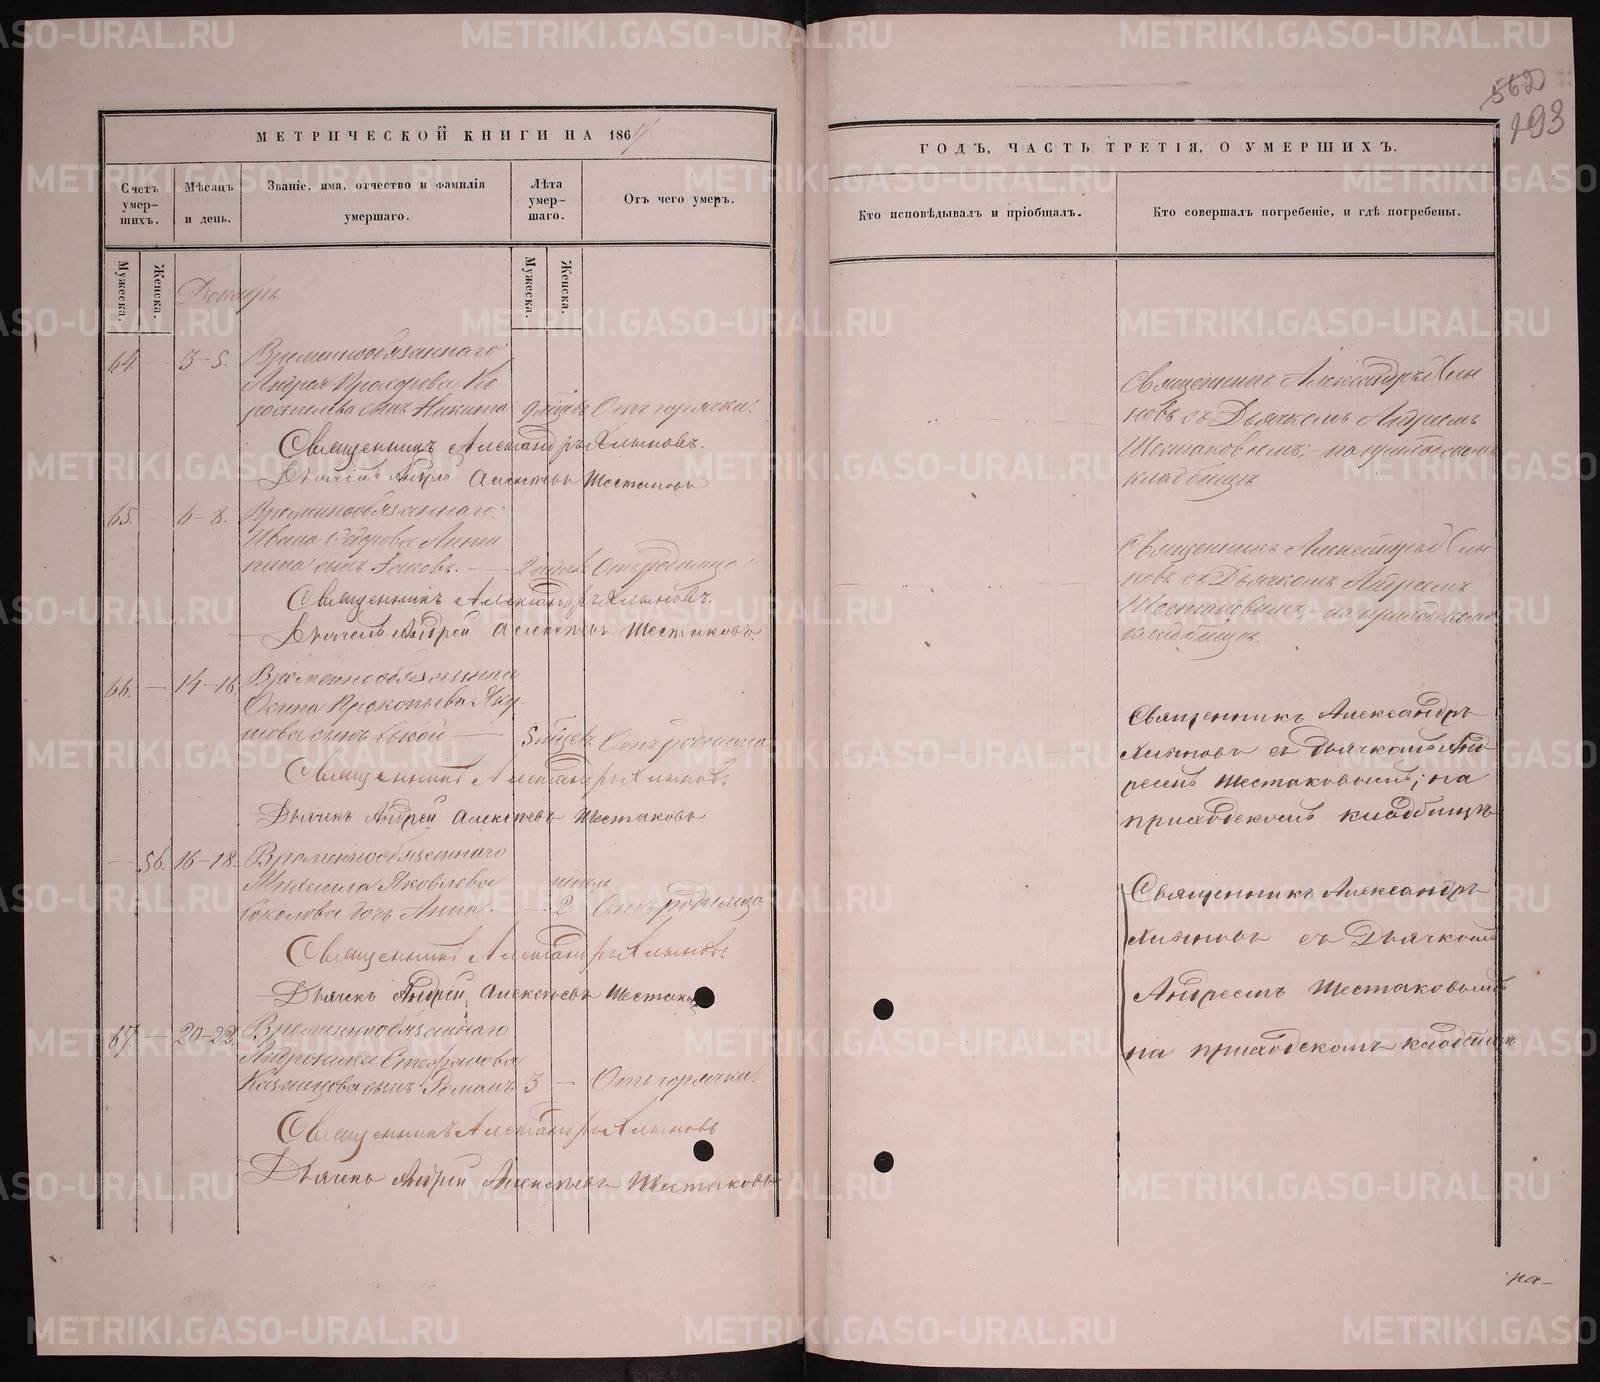 562
193
МЕТРИЧЕСКОЙ КНИГИ НА 186
ГОДЪ, ЧАСТЬ ТРЕТІЯ, О УМЕРШИХЪ.
Счетъ умер-шихъ.
Мѣсяцъ и день.
Званіе, имя, отчество и фамилія умершаго.
Лѣта умер-шаго.
Отъ чего умеръ.
Кто исповѣдывалъ и пріобщалъ.
Кто совершалъ погребеніе, и гдѣ погребены.
Мужеска.
Женска.
Мужеска.
Женска.
Декабрь.
64. — 3-5. Временнообязаннаго
Андрея Прохорова Ко
ростелева сынъ Никита 9 мѣсец. Отъ горячки.
Священникъ Александръ Хлыновъ.
Дьячекъ Андрей Алексѣевъ Шестаковъ
Священникъ Александръ Хлы
новъ съ Дьячкомъ Андреемъ
Шестаковымъ; на приходскомъ
кладбищѣ.
65. — 6-8. Временнообязаннаго
Ивана Ѳедорова Анти
пина сынъ Іаковъ. — 2 Отъ родимца
Священникъ Александръ Хлыновъ.
Дьячекъ Андрей Алексѣевъ Шестаковъ.
Священникъ Александръ Хлы-
новъ съ Дьячкомъ Андреемъ
Шестаковымъ, на приходскомъ
кладбищѣ.
66. — 14-16. Временнообязаннаго
Осипа Прокопьева Яку-
шова сынъ — 5 мѣсец. Отъ родимца
Священникъ Александръ Хлыновъ
Дьячекъ Андрей Алексѣевъ Шестаковъ
Священникъ Александръ
Хлыновъ съ Дьячкомъ Анд
реемъ Шестаковымъ; на
приходскомъ кладбищѣ
— 56. 16-18. Временнообязаннаго
Михаила Яковлева
Соколова дочь Анна. — 2 Отъ родимца
Священникъ Александръ Хлыновъ
Дьячекъ Андрей Алексѣевъ Шестаковъ
Священникъ Александръ
Хлыновъ съ Дьячкомъ
Андреемъ Шестаковымъ
на приходскомъ кладбищѣ
67. — 20-22. Временнообязаннаго
Андроника Стефанова
Казанцова сынъ Романъ 3 — Отъ горячки.
Священникъ Александръ Хлыновъ
Дьячекъ Андрей Алексѣевъ Шестаковъ
на-
METRIKI.GASO-URAL.RU